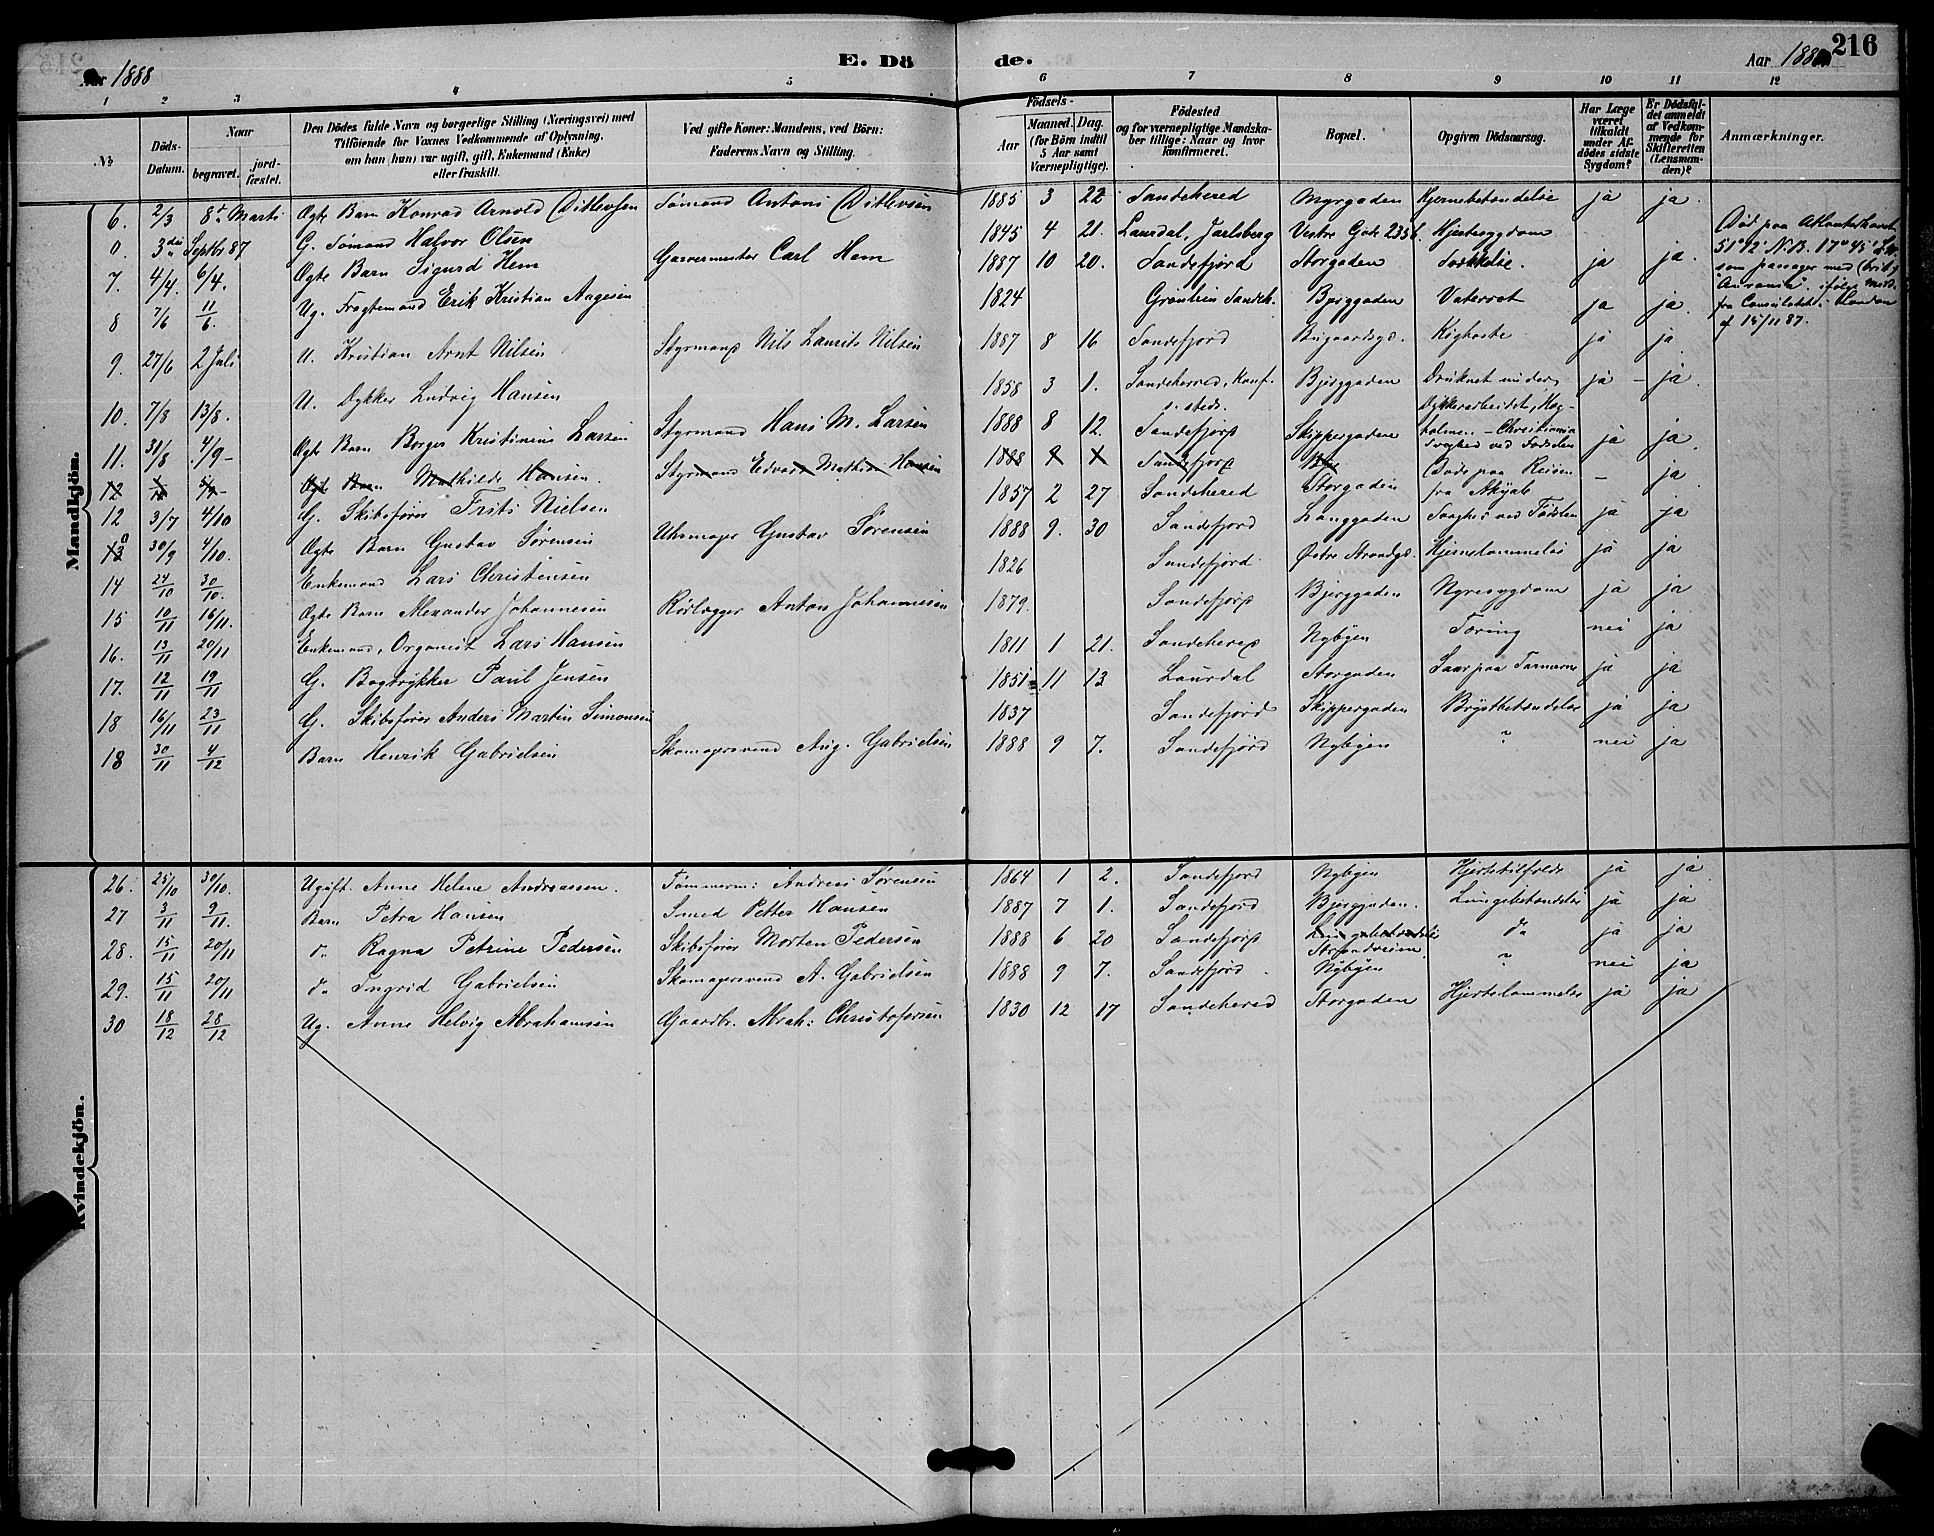 216
Aar 1888
E. Dö de.
Aar 1888
1 2 3 4 5 6 7 8 9 10 11 12
No
Döds-Datum.
Naar
begravet.
jord-fæstet.
Den Dödes fulde Navn og borgerlige Stilling (Næringsvei) med
Tilföiende for Voxnes Vedkommende af Oplysning,
om han (hun) var ugift, gift, Enkemand (Enke)
eller fraskilt.
Ved gifte Koner: Mandens, ved Börn:
Faderens Navn og Stilling.
Födsels-
Aar
Maaned.
Dag.
(for Börn indtil
5 Aar samt
Værnepligtige).
Födested
og for værnepligtige Mandska-
ber tillige: Naar og hvor
konfirmeret.
Bopæl.
Opgiven Dödsaarsag.
Har Læge
været
tilkaldt
under Af-
dödes sidste
Sygdom?
Er Dödsfal-
det anmeldt
af Vedkom-
mende for
Skifteretten
(Lensman-
den)?
Anmærkninger.
Mandkjön.
6. 2/3 8de Marts Ægte Barn Konrad Arnold Ditlevsen Sømand Antoni Ditlevsen 1885 3 22 Sandehered Myrgaden Hjernebetændelse ja ja.
0. 3die Septbr 87 G. Sømand Halvor Olsen 1845 4 21. Laurdal, Jarlsberg Vestre Gade 235 b. Hjertesygdom
Død paa Atlanterhavet
51°12' N.B. 17°45'
som passager med
fra Consulatet i London
af 15/11 87.
7. 4/4. 6/4. Ægte Barn Sigurd Hem Garvermester Carl Hem 1887 10 20. Sandefjord Storgaden ja ja.
8 7/6 11/6. Ug. Fragtemand Erik Kristian Aagesen 1824 Sandeh. Bjerggaden Vatersot ja ja.
9. 27/6 2 Juli U. Kristian Arnt Nilsen Styrmand Nils Laurits Nilsen 1887 8 16 Sandefjord Bugaardsg. Kighoste ja ja.
10. 7/8 13/8. U. Dykker Ludvig Hansen 1858 3 1. Sandehered, Konf.
s. steds. Bjerggaden Druknet under
Dykkerarbeidet,
holmen - Christiania ja - ja.
11. 31/8 4/9 - Ægte Barn Borger Kristinius Larsen Styrmand Hans M. Larsen 1888 8 12. Sandefjord Skippergaden Svaghed ved Fødselen ja ja.
12 Ægte Barn Mathilde Hansen. Styrmand Edvard Mathias Hansen 1888 Sandefjord
12 3/7 4/10 G. Skibsfører Frits Nielsen 1857 2 27 Sandehered Storgaden Døde paa Reisen
fra Akyab - ja
13 30/9 4/10. Ægte Barn Gustav Sørensen Uhrmager Gustav Sørensen 1888 9. 30 Sandefjord Langgaden Svaghed ved Fødslen ja ja
14 24/10 30/10. Enkemand Lars Christensen 1826 Sandefjord. Østre Strandg. Hjernelammelse ja ja
15 10/11 16/11. Ægte Barn Alexander Johannesen Rørlægger Anton Johannesen 1879. Sandefjord Bjerggaden Nyresygdom ja ja
16. 13/11 20/11 Enkemand, Organist Lars Hansen 1811 1 21. Sandehered Nybyen Tæring nei ja
17. 12/11 19/11 G. Bogtrykker Paul Jensen 1851 11 13 Laurdal Storgaden Saar paa Tarmerne ja ja
18 16/11 23/11 G. Skibsfører Anders Martin Simonsen 1837 Sandefjord Skippergaden Brystbetændelse ja ja
18 30/11 4/12 Barn Henrik Gabrielsen Skomagersvend Aug. Gabrielsen 1888 9 7. Sandefjord Nybyen ? nei ja
Kvindekjön.
26. 25/10 30/10. Ugift. Anne Helene Andreassen. Tømmerm: Andreas Sørensen 1864 1 2. Sandefjord Nybyen Hjertetilfælde ja ja.
27 3/11 9/11. Barn Petra Hansen Smed Petter Hansen 1887 7 1. Sandefjord Bjerggaden. Lungebetændelse ja ja
28. 15/11 20/11 do Ragna Petrine Pedersen Skibsfører Morten Pedersen 1888 6 20 Sandefjord Lungebetændelse
Strandveien. do ja ja
29. 15/11 20/11 do Ingrid Gabrielsen Skomagersvend A. Gabrielsen 1888 9 7. Sandefjord. Nybyen ? nei ja
30 18/12 28/12 Ug. Anne Helvig Abrahamsen Gaardbr. Abrah: Christofersen 1830 12 17 Sandehered Storgaden Hjertelammelse ja ja